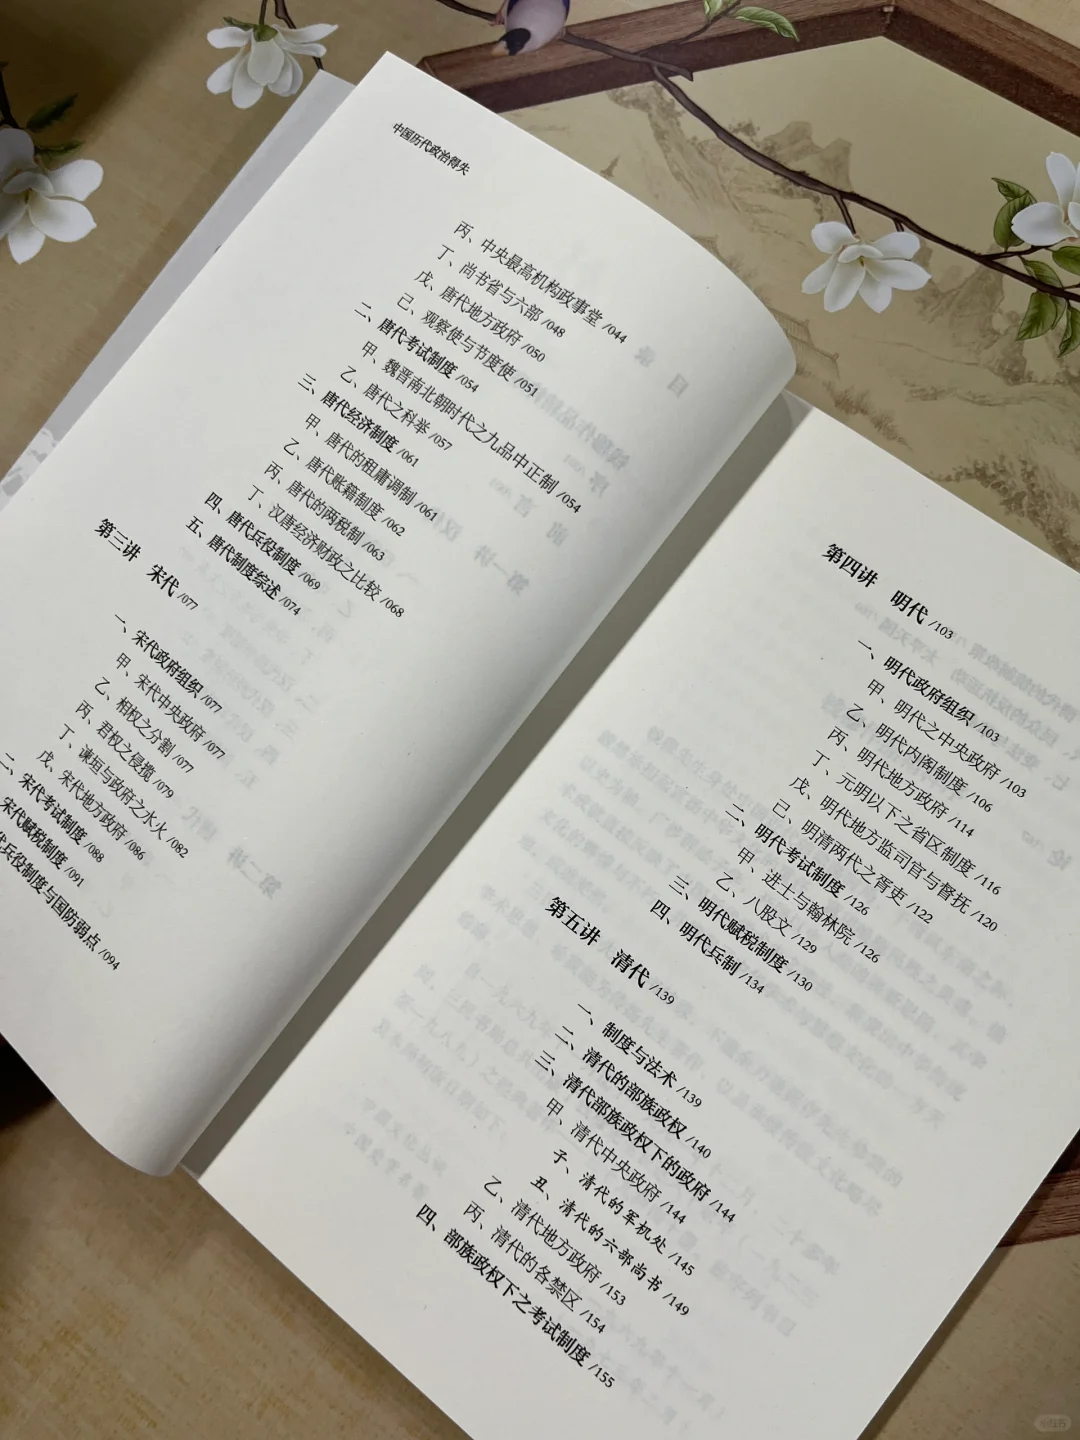 中国历代政治得失
丙、中央最高机构政事堂 /044
丁、尚书省与六部 /048
戊、唐代地方政府 /050
己、观察使与节度使 /051
二、唐代考试制度 /054
甲、魏晋南北朝时代之九品中正制 /054
乙、唐代之科举 /057
三、唐代经济制度 /061
甲、唐代的租庸调制 /061
乙、唐代账籍制度 /062
丙、唐代的两税制 /063
丁、汉唐经济财政之比较 /068
四、唐代兵役制度 /069
五、唐代制度综述 /074
第三讲 宋代 /077
一、宋代政府组织 /077
甲、宋代中央政府 /077
乙、相权之分割 /077
丙、君权之侵揽 /079
丁、谏垣与政府之水火 /082
戊、宋代地方政府 /086
二、宋代考试制度 /088
宋代赋税制度 /091
代兵役制度与国防弱点 /094
第四讲 明代 /103
一、明代政府组织 /103
甲、明代之中央政府 /103
乙、明代内阁制度 /106
丙、明代地方政府 /114
丁、元明以下之省区制度 /116
戊、明代地方监司官与督抚 /120
己、明清两代之胥吏 /122
二、明代考试制度 /126
甲、进士与翰林院 /126
乙、八股文 /129
三、明代赋税制度 /130
四、明代兵制 /134
第五讲 清代 /139
一、制度与法术 /139
二、清代的部族政权 /140
三、清代部族政权下的政府 /144
甲、清代中央政府 /144
子、清代的军机处 /145
丑、清代的六部尚书 /149
乙、清代地方政府 /153
丙、清代的各禁区 /154
四、部族政权下之考试制度 /155